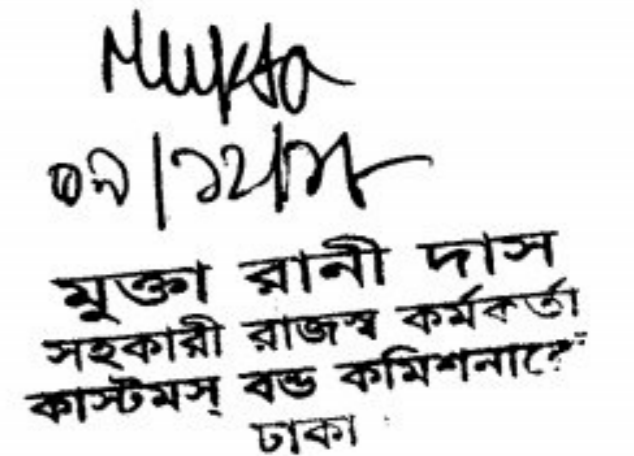 Mukta
০৯/১২/১৮
মুক্তা রানী দাস
সহকারী রাজস্ব কর্মকর্তা
কাস্টমস্ বন্ড কমিশনারেট
ঢাকা